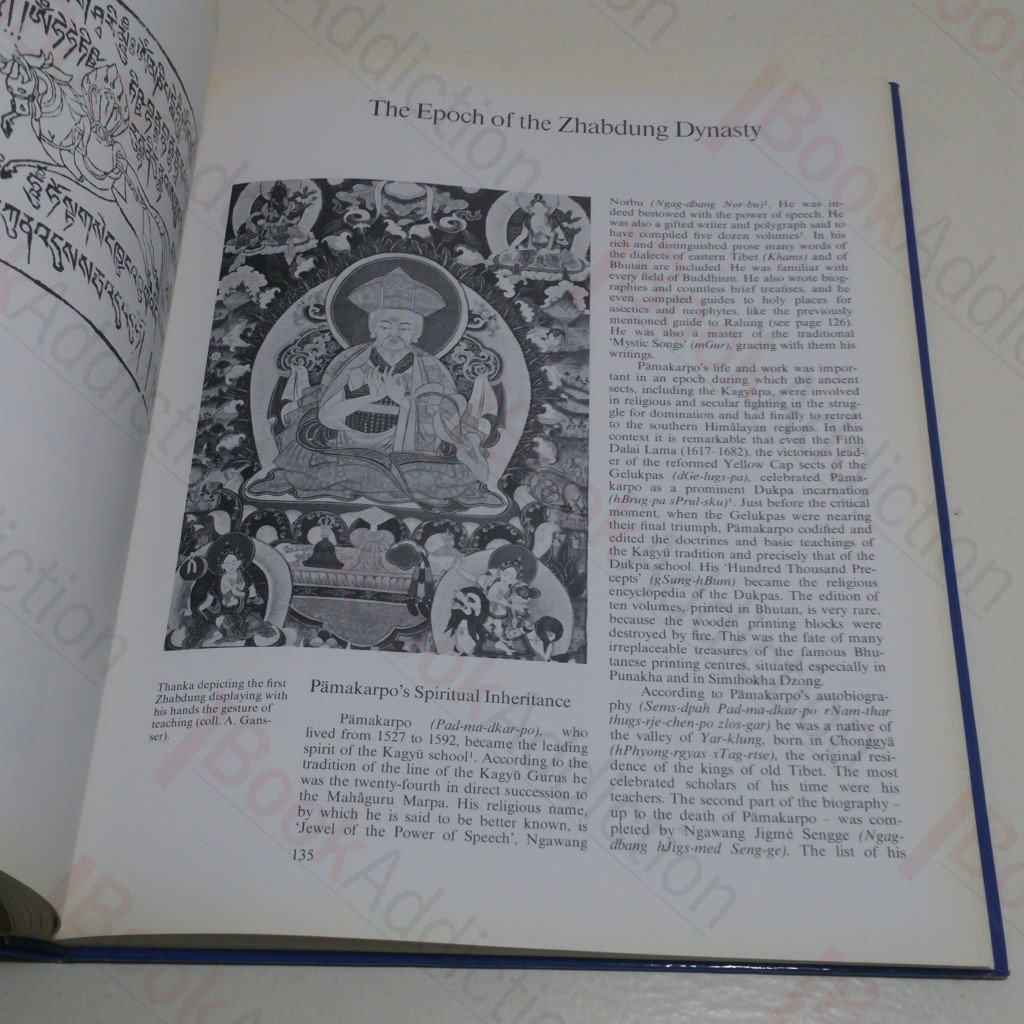 The Epoch of the Zhabdung Dynasty
Thanka depicting the first
Zhabdung displaying with
his hands the gesture of
teaching (coll. A. Gans-
ser).
Pämakarpo's Spiritual Inheritance
Pämakarpo (Pad-ma-dkar-po), who
lived from 1527 to 1592, became the leading
spirit of the Kagyü school¹. According to the
tradition of the line of the Kagyü Gurus he
was the twenty-fourth in direct succession to
the Mahâguru Marpa. His religious name,
by which he is said to be better known, is
'Jewel of the Power of Speech', Ngawang
135
Norbu (Ngag-dbang Nor-bu)². He was in-
deed bestowed with the power of speech. He
was also a gifted writer and polygraph said to
have compiled five dozen volumes³. In his
rich and distinguished prose many words of
the dialects of eastern Tibet (Khams) and of
Bhutan are included. He was familiar with
every field of Buddhism. He also wrote biog-
raphies and countless brief treatises, and he
even compiled guides to holy places for
ascetics and neophytes, like the previously
mentioned guide to Ralung (see page 126).
He was also a master of the traditional
'Mystic Songs' (mGur), gracing with them his
writings.
Pämakarpo's life and work was impor-
tant in an epoch during which the ancient
sects, including the Kagyüpa, were involved
in religious and secular fighting in the strug-
gle for domination and had finally to retreat
to the southern Himâlayan regions. In this
context it is remarkable that even the Fifth
Dalai Lama (1617-1682), the victorious lead-
er of the reformed Yellow Cap sects of the
Gelukpas (dGe-lugs-pa), celebrated Päma-
karpo as a prominent Dukpa incarnation
(hBrug-pa sPrul-sku)¹. Just before the critical
moment, when the Gelukpas were nearing
their final triumph, Pämakarpo codified and
edited the doctrines and basic teachings of
the Kagyü tradition and precisely that of the
Dukpa school. His 'Hundred Thousand Pre-
cepts' (gSung-hBum) became the religious
encyclopedia of the Dukpas. The edition of
ten volumes, printed in Bhutan, is very rare,
because the wooden printing blocks were
destroyed by fire. This was the fate of many
irreplaceable treasures of the famous Bhu-
tanese printing centres, situated especially in
Punakha and in Simthokha Dzong.
According to Pämakarpo's autobiogra-
phy (Sems-dpah Pad-ma-dkar-po rNam-thar
thugs-rje-chen-po zlos-gar) he was a native of
the valley of Yar-klung, born in Chonggyä
(hPhyong-rgyas sTag-rtse), the original resi-
dence of the kings of old Tibet. The most
celebrated scholars of his time were his
teachers. The second part of the biography –
up to the death of Pämakarpo – was com-
pleted by Ngawang Jigmé Sengge (Ngag-
dbang hJigs-med Seng-ge). The list of his
BookAddiction